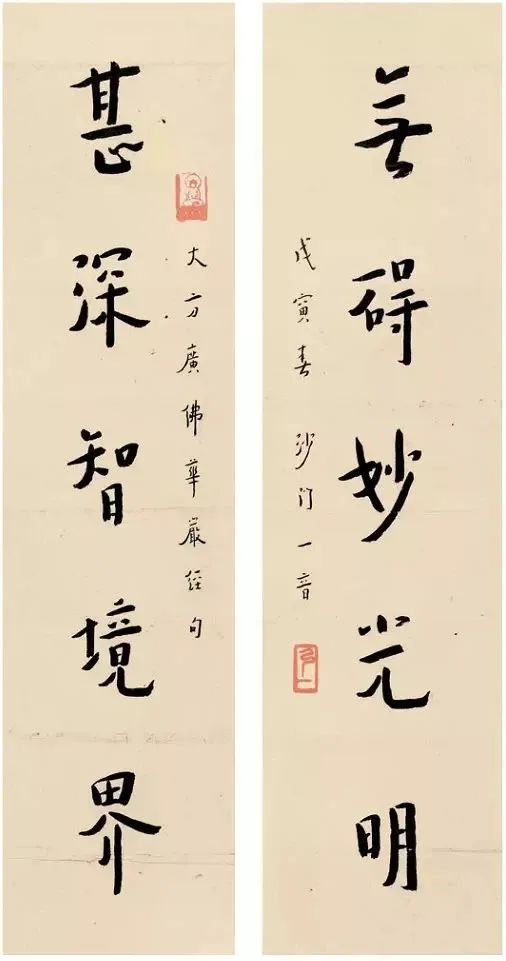 無碍妙光明
戊寅春 沙门一音
弘一
大方廣佛華嚴經句
甚深智境界